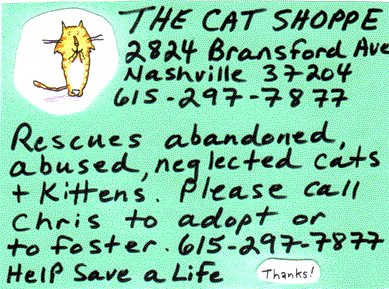 THE CAT SHOPPE
2824 Bransford Ave
Nashville 37204
615-297-7877
Rescues abandoned,
abused, neglected cats
+ Kittens. Please call
Chris to adopt or
to foster. 615-297-7877
Help Save a Life
Thanks!